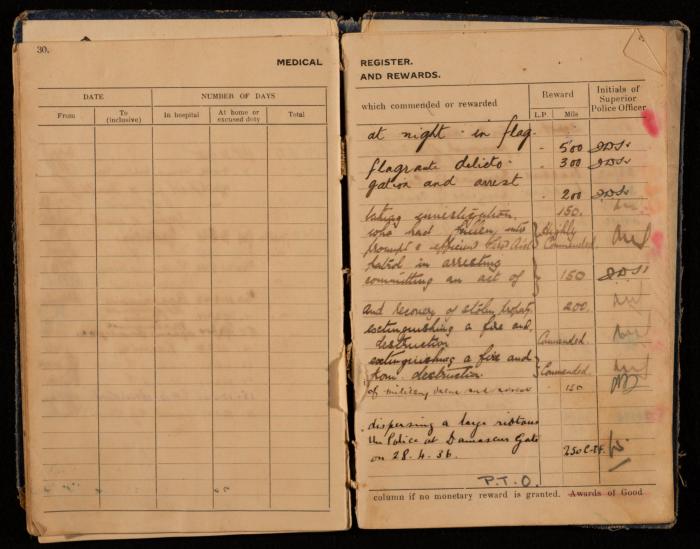 30.
MEDICAL
DATE
NUMBER OF DAYS
From
To (inclusive)
In hospital
At home or excused duty
Total
REGISTER.
AND REWARDS.
which commended or rewarded
Reward
L.P.
Mils
Initials of Superior Police Officer
at night in flag-
- 500
flagrante delicto -
- 300
gation and arrest
- 200
taking investigation.
150.
who had fallen into
Highly
prompt & efficient First Aid
Commended.
patrol in arresting
committing an act of
150
and recovery of stolen property
200.
extinguishing a fire and
destruction
Commended.
extinguishing a fire and
from destruction.
Commended.
of military
150
dispersing a large riotous
the Police at Damascus Gate
on 28.4.36.
250
P.T.O.
column if no monetary reward is granted. Awards of Good